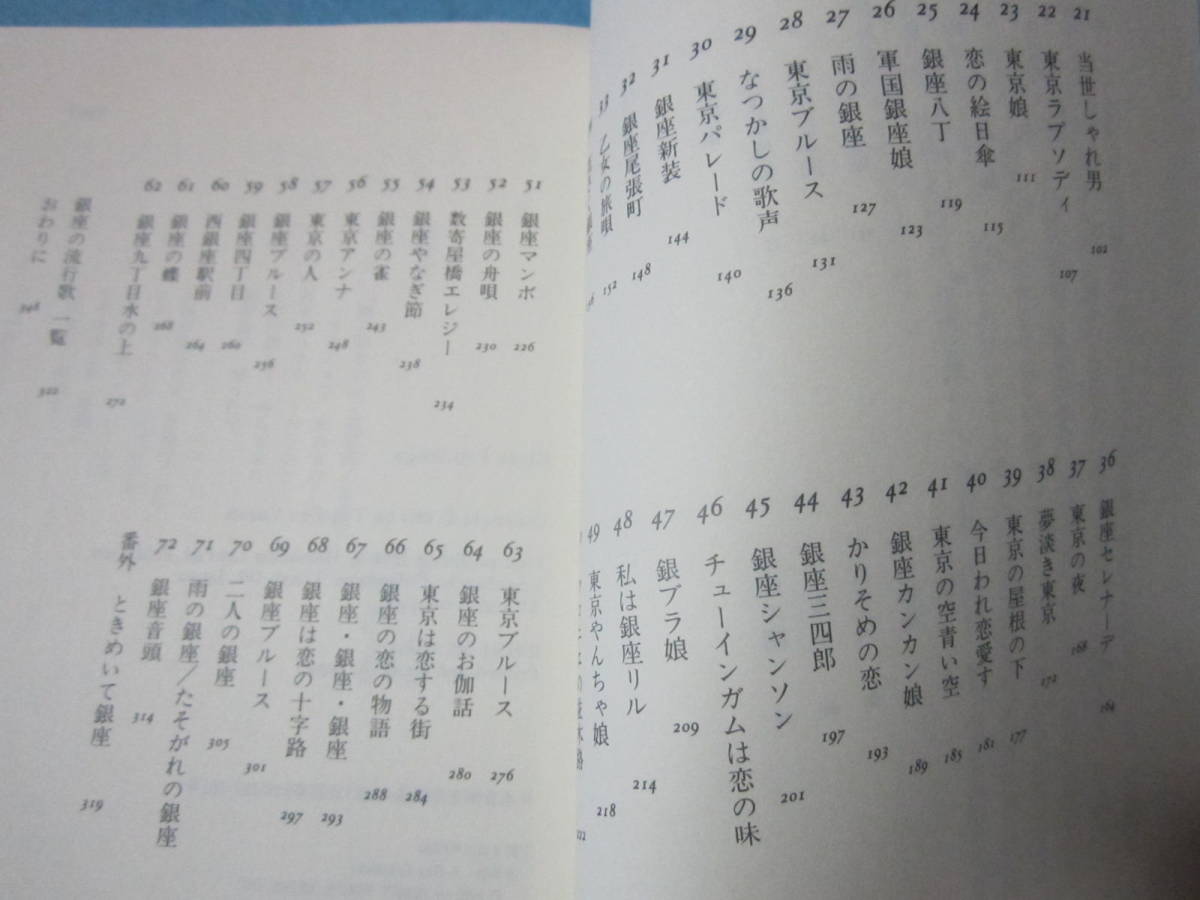 21 当世しゃれ男 102
22 東京ラプソディ 107
23 東京娘 111
24 恋の絵日傘 115
25 銀座八丁 119
26 軍国銀座娘 123
27 雨の銀座 127
28 東京ブルース 131
29 なつかしの歌声 136
30 東京パレード 140
31 銀座新装 144
32 銀座尾張町 148
33 乙女の旅唄 152
36 銀座セレナーデ 164
37 東京の夜 168
38 夢淡き東京 172
39 東京の屋根の下 177
40 今日われ恋愛す 181
41 東京の空青い空 185
42 銀座カンカン娘 189
43 かりそめの恋 193
44 銀座三四郎 197
45 銀座シャンソン 201
46 チューインガムは恋の味
47 銀ブラ娘 209
48 私は銀座リル 214
49 東京やんちゃ娘 218
51 銀座マンボ 226
52 銀座の舟唄 230
53 数寄屋橋エレジー 234
54 銀座やなぎ節 238
55 銀座の雀 243
56 東京アンナ 248
57 東京の人 252
58 銀座ブルース 256
59 銀座四丁目 260
60 西銀座駅前 264
61 銀座の蝶 268
62 銀座九丁目水の上 272
63 東京ブルース 276
64 銀座のお伽話 280
65 東京は恋する街 284
66 銀座の恋の物語 288
67 銀座・銀座・銀座 293
68 銀座は恋の十字路 297
69 銀座ブルース 301
70 二人の銀座 305
71 雨の銀座／たそがれの銀座
72 銀座音頭 314
番外 ときめいて銀座 319
銀座の流行歌 一覧 322
おわりに 348